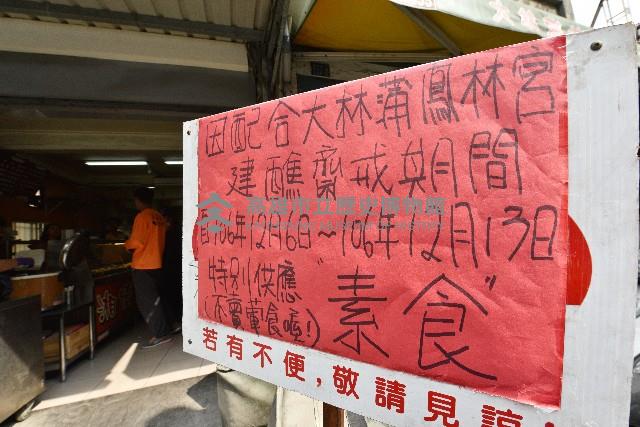 因配合大林蒲鳳林宮
建醮齋戒期間
自106年12月6日~106年12月13日
特別供應"素食"
(不賣葷食喔!)
若有不便,敬請見諒!
高雄市立歷史博物館